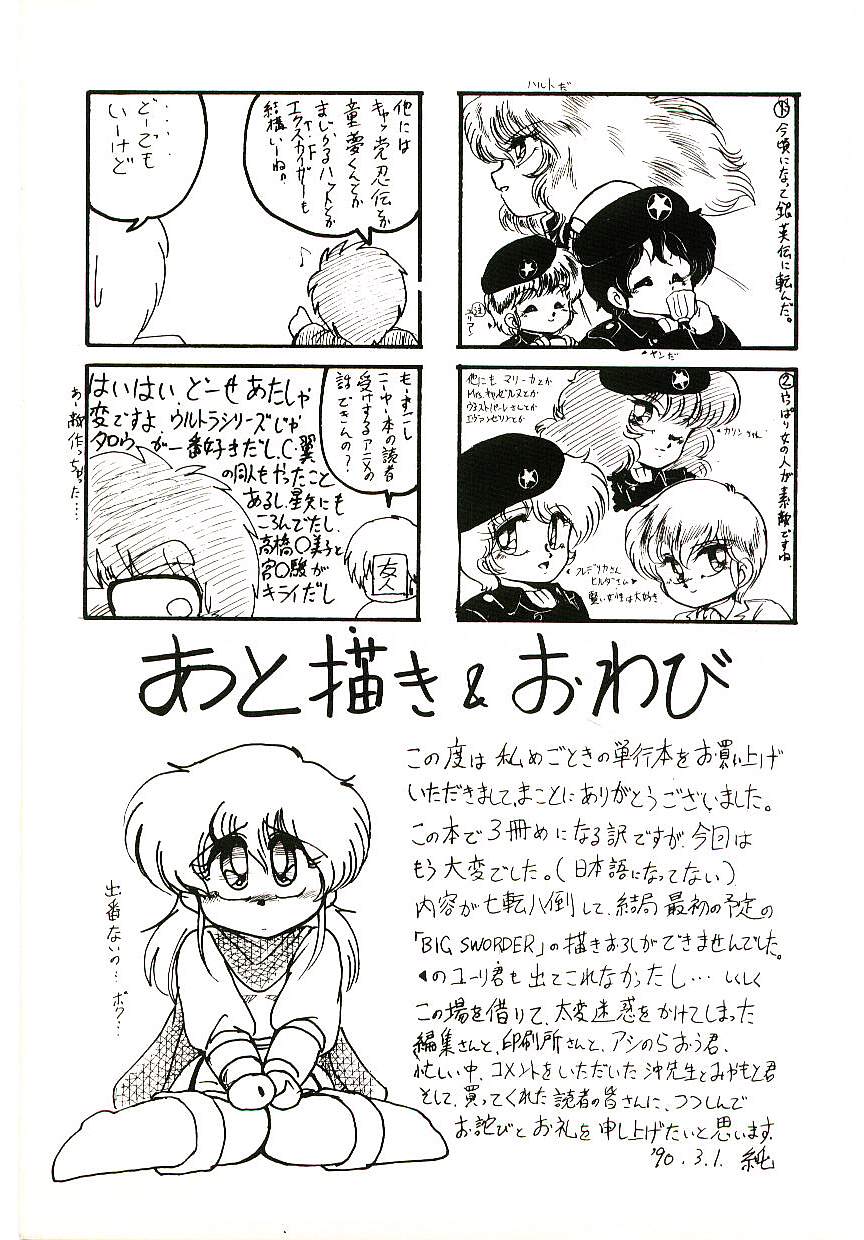 ハルトだ
①今頃になって銀英伝に転んだ。
注
ユリアン
ヤンだ
②やっぱり女の人が素敵ですね。
他にも マリーカとか
Mrs.キャゼルヌとか
ヴェストパーレさんとか
エヴァンゼリンとか
カリンちゃん
フレデリカさん
ヒルダさん♥
賢い女性は大好き
他には
キャッ党忍伝とか
童夢くんとか
まじかるハットとか
T・F
エクスカイザーも
結構いーね。
♪
……
どーでも
いーけど
もーすこし
ニーヤー本の読者
受けするアニメの
話できんの？
友人
はいはい、どーせあたしゃ
変ですよ、ウルトラシリーズじゃ
タロウが一番好きだし、C.翼
の同人もやったこと
あるし、星矢にも
ころんでたし、
高橋〇美子と
宮〇駿が
キライだし
あー敵作っちゃった…
あと描き&おわび
この度は私めごときの単行本をお買い上げ
いただきまして、まことにありがとうございました。
この本で3冊めになる訳ですが、今回は
もう大変でした。(日本語になってない)
内容が七転八倒して、結局最初の予定の
「BIG SWORDER」の描きおろしができませんでした。
◀のユーリ君も出てこれなかったし… しくしく
この場を借りて、大変迷惑をかけてしまった
編集さんと、印刷所さんと、アシのらおう君、
忙しい中、コメントをいただいた沖先生とみやもと君
そして、買ってくれた読者の皆さんに、つつしんで
お詫びとお礼を申し上げたいと思います。
'90.3.1. 純
出番ないの…ボク…